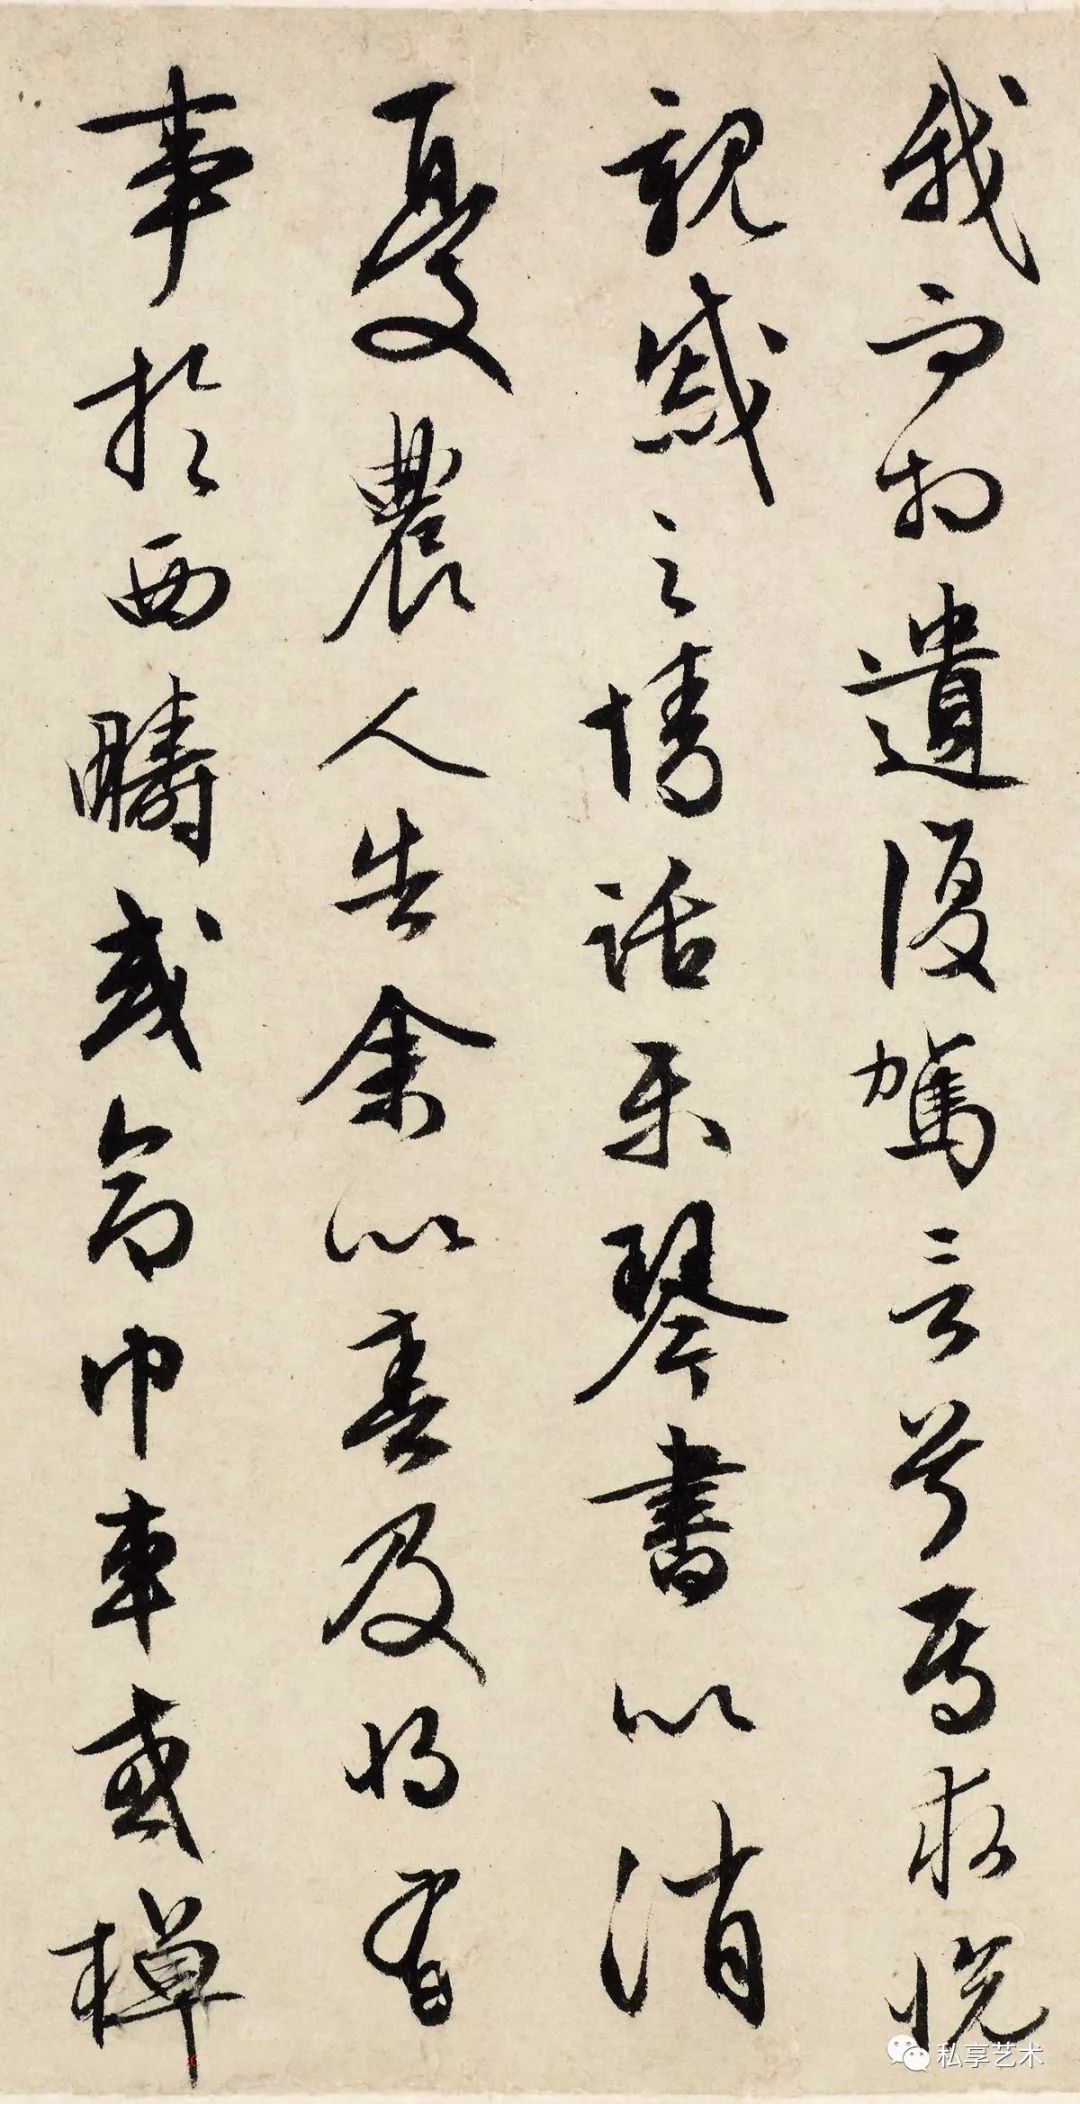 我而相遺復駕言兮焉求悅
親戚之情話樂琴書以消
憂農人告余以春及将有
事於西疇或命巾車或棹
私享艺术